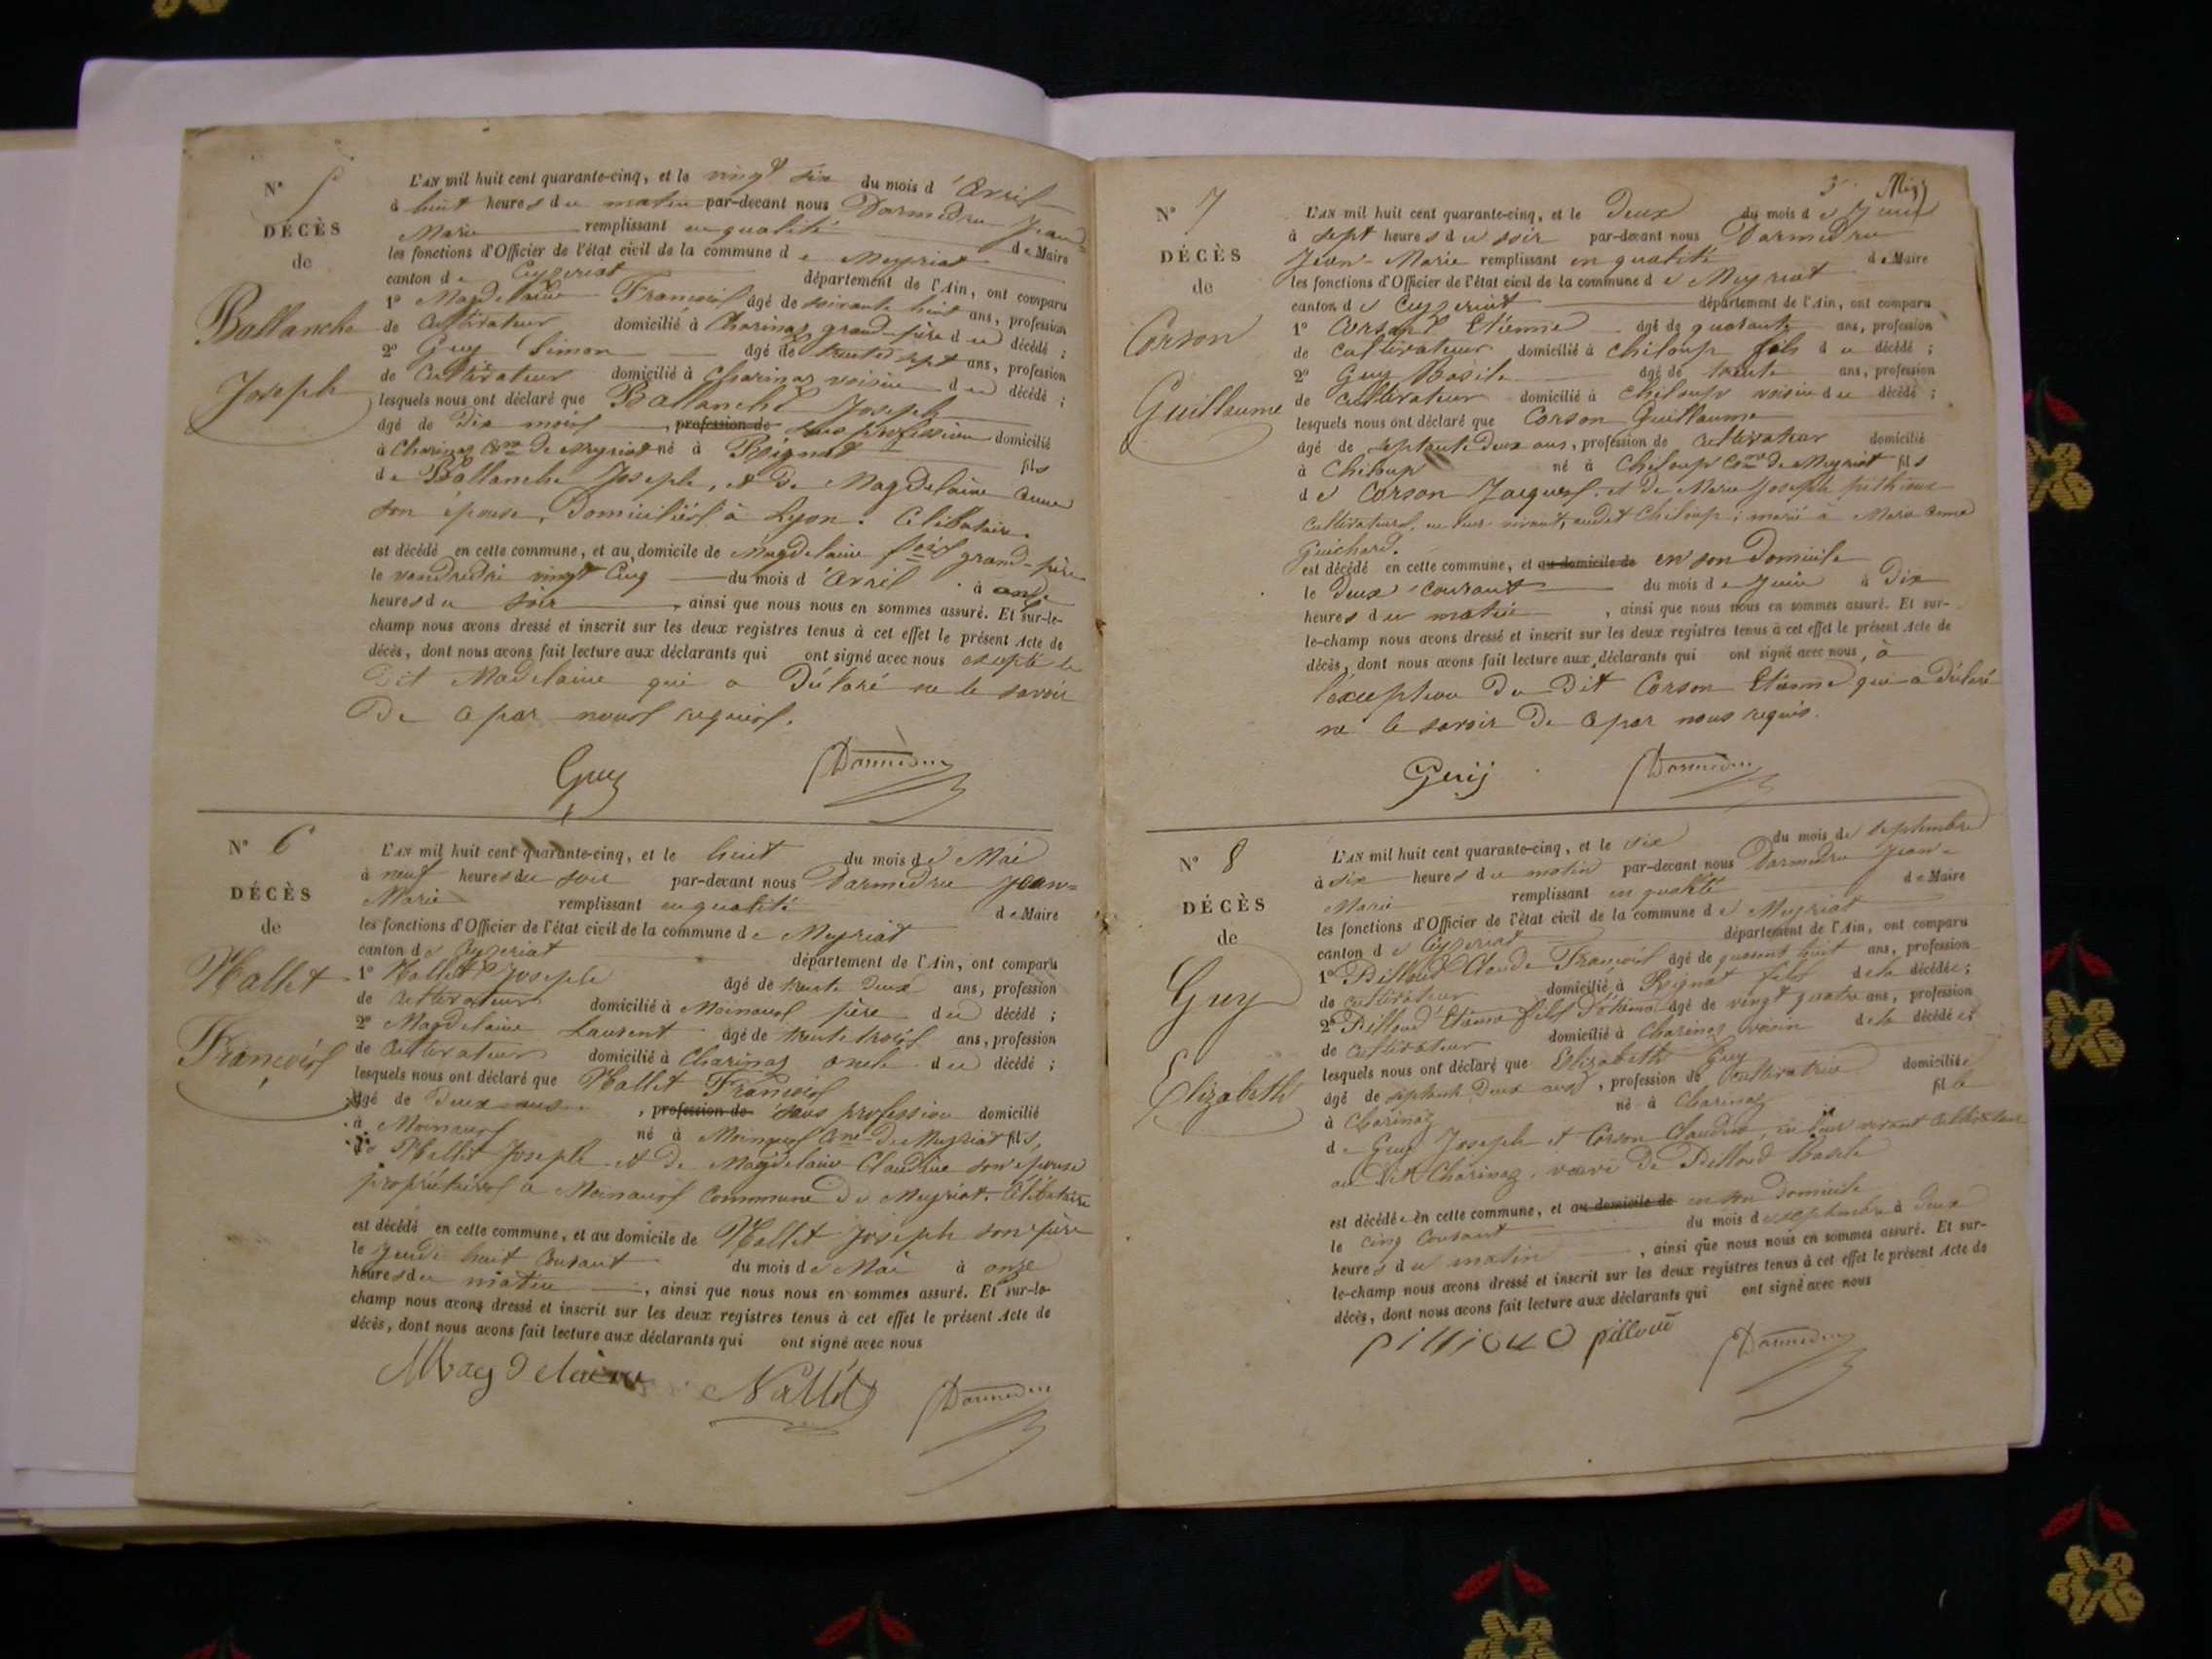 N° 5
DÉCÈS
de
Ballanche
Joseph
L'AN mil huit cent quarante-cinq, et le vingt six du mois d'Avril
à huit heures du matin par-devant nous Darmedru Jean-
Marie remplissant en qualité de Maire
les fonctions d'Officier de l'état civil de la commune de Meyriat
canton de Ceyzeriat département de l'Ain, ont comparu
1° Magdelaine François âgé de soixante huit ans, profession
de Cultivateur domicilié à Charinaz grand-père du décédé ;
2° Guy Simon âgé de trente sept ans, profession
de Cultivateur domicilié à Charinaz voisin du décédé ;
lesquels nous ont déclaré que Ballanche Joseph
âgé de Dix mois, profession de sans profession domicilié
à Charinaz Cne de Meyriat né à Rignat fils
de Ballanche Joseph, et de Magdelaine Anne
son épouse, Domiciliés à Lyon. Célibataire.
est décédé en cette commune, et au domicile de Magdelaine fois grand-père
le vendredi vingt Cinq du mois d'Avril à onze
heures du soir, ainsi que nous nous en sommes assuré. Et sur-le-
champ nous avons dressé et inscrit sur les deux registres tenus à cet effet le présent Acte de
décès, dont nous avons fait lecture aux déclarants qui ont signé avec nous excepté le
Dit Madelaine qui a Déclaré ne le savoir
De ce par nous requis.
Guy Darmedru
N° 6
DÉCÈS
de
Hallet
François
L'AN mil huit cent quarante-cinq, et le huit du mois de Mai
à neuf heures du soir par-devant nous Darmedru Jean-
Marie remplissant en qualité de Maire
les fonctions d'Officier de l'état civil de la commune de Meyriat
canton de Ceyzeriat département de l'Ain, ont comparu
1° Hallet Joseph âgé de trente deux ans, profession
de Cultivateur domicilié à Moinans père du décédé ;
2° Magdelaine Laurent âgé de trente trois ans, profession
de Cultivateur domicilié à Charinaz oncle du décédé ;
lesquels nous ont déclaré que Hallet François
âgé de Deux ans, profession de sans profession domicilié
à né à Cne de Meyriat fils,
de Hallet Joseph et de Magdelaine Claudine son épouse
propriétaires à commune de Meyriat. Célibataire
est décédé en cette commune, et au domicile de Hallet Joseph son père
le jeudi huit Courant du mois de Mai à onze
heures du matin, ainsi que nous nous en sommes assuré. Et sur-le-
champ nous avons dressé et inscrit sur les deux registres tenus à cet effet le présent Acte de
décès, dont nous avons fait lecture aux déclarants qui ont signé avec nous
Magdelaine Nallet Darmedru
3
N° 7
DÉCÈS
de
Corson
Guillaume
L'AN mil huit cent quarante-cinq, et le Deux du mois de Juin
à sept heures du soir par-devant nous Darmedru
Jean-Marie remplissant en qualité de Maire
les fonctions d'Officier de l'état civil de la commune de Meyriat
canton de Ceyzeriat département de l'Ain, ont comparu
1° Corson Etienne âgé de quarante ans, profession
de Cultivateur domicilié à Chiloup fils du décédé ;
2° Guy Basile âgé de trente ans, profession
de Cultivateur domicilié à Chiloup voisin du décédé ;
lesquels nous ont déclaré que Corson Guillaume
âgé de septante Deux ans, profession de Cultivateur domicilié
à Chiloup né à Chiloup Cne de Meyriat fils
de Corson Jacques, et de Marie Joseph
Cultivateurs, en leur vivant, audit Chiloup ; marié à Marie Anne
Guichard.
est décédé en cette commune, et au domicile de en son Domicile
le Deux courant du mois de Juin à Dix
heures du matin, ainsi que nous nous en sommes assuré. Et sur-
le-champ nous avons dressé et inscrit sur les deux registres tenus à cet effet le présent Acte de
décès, dont nous avons fait lecture aux déclarants qui ont signé avec nous, à
l'exception Du Dit Corson Etienne qui a Déclaré
ne le savoir De ce par nous requis.
Guy Darmedru
N° 8
DÉCÈS
de
Guy
Elizabeth
L'AN mil huit cent quarante-cinq, et le six du mois de septembre
à six heures du matin par-devant nous Darmedru Jean-
Marie remplissant en qualité de Maire
les fonctions d'Officier de l'état civil de la commune de Meyriat
canton de Ceyzeriat département de l'Ain, ont comparu
1° Pilloud Claude François âgé de quarant huit ans, profession
de cultivateur domicilié à Rignat fils de la décédée ;
2° Pilloud Etienne fils d'Etienne âgé de vingt quatre ans, profession
de Cultivateur domicilié à Charinaz voisin de la décédée ;
lesquels nous ont déclaré que Elizabeth Guy
âgé de septante Deux ans, profession de Cultivatrice domiciliée
à Charinaz né à Charinaz fille
de Guy Joseph et Corson Claudine, en leur vivant Cultivateurs
au dit Charinaz, veuve De Pilloud Basile
est décédée en cette commune, et au domicile de en son Domicile
le cinq Courant du mois de septembre à Deux
heures du matin, ainsi que nous nous en sommes assuré. Et sur-
le-champ nous avons dressé et inscrit sur les deux registres tenus à cet effet le présent Acte de
décès, dont nous avons fait lecture aux déclarants qui ont signé avec nous
pilloud Darmedru